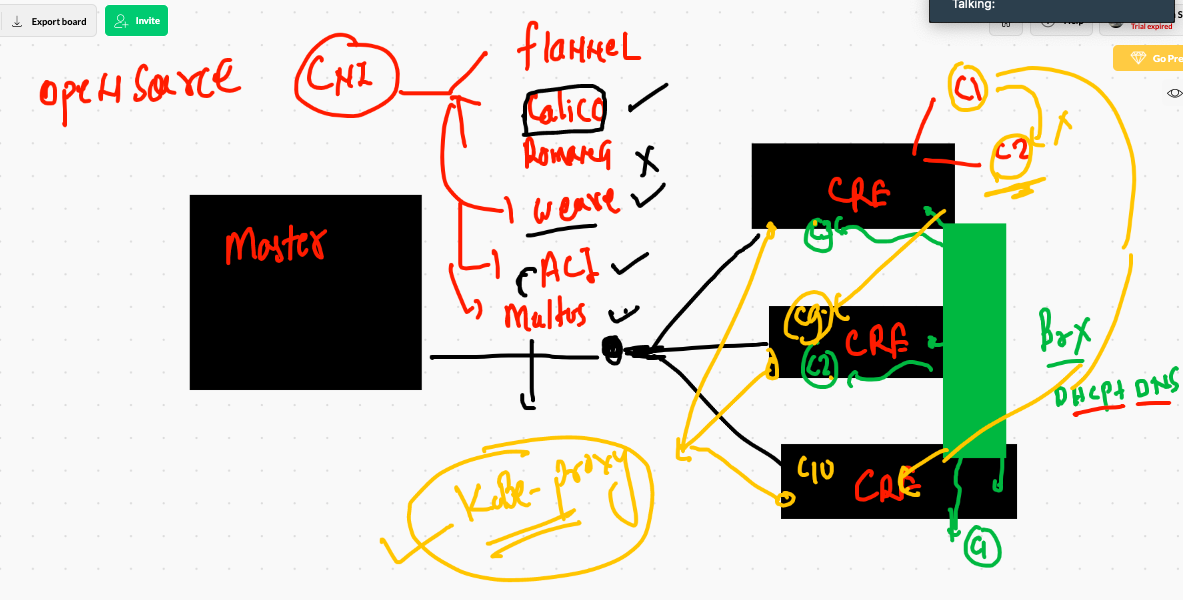 Talking:
Export board
Invite
Help
Trial expired
Go Pre
OpenSource
CNI
flannel
Calico
Romana
weave
ACI
Multus
Master
CRE
C1
C2
CRE
C2
C10
CRE
BrX
DHCP+ DNS
Kube-proxy